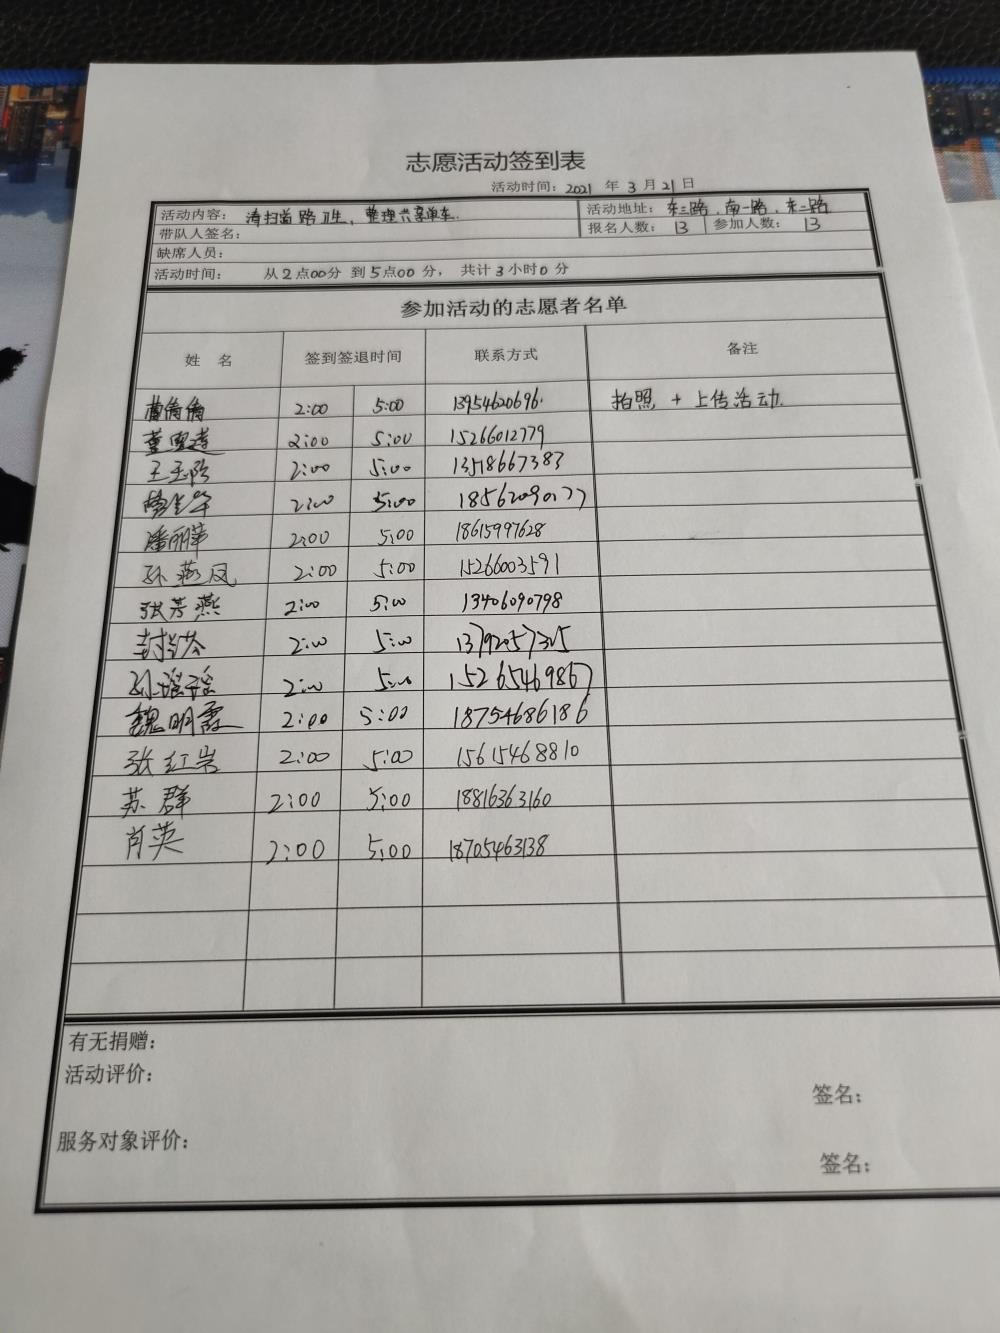 志愿活动签到表
活动时间：2021 年 3 月 21 日
活动内容：清扫道路卫生，整理共享单车. 活动地址：东三路，南一路，东二路
带队人签名： 报名人数：13 参加人数：13
缺席人员：
活动时间： 从2点00分 到5点00分， 共计3小时0分
参加活动的志愿者名单
姓 名 签到签退时间 联系方式 备注
曹倩倩 2:00 5:00 13954620696. 拍照 + 上传活动.
董 2:00 5:00 15266012779
王玉 2:00 5:00 13518667383
2:00 5:00 18562090177
潘丽華 2:00 5:00 18615997628
孙燕凤 2:00 5:00 15266003591
张芳燕 2:00 5:00 13406090798
封 2:00 5:00 13792057315
孙瑶瑶 2:00 5:00 15265469867
魏明霞 2:00 5:00 18754686186
张红岩 2:00 5:00 15615468810
苏群 2:00 5:00 18816363160
肖英 2:00 5:00 18705463138
有无捐赠：
活动评价：
签名：
服务对象评价：
签名：